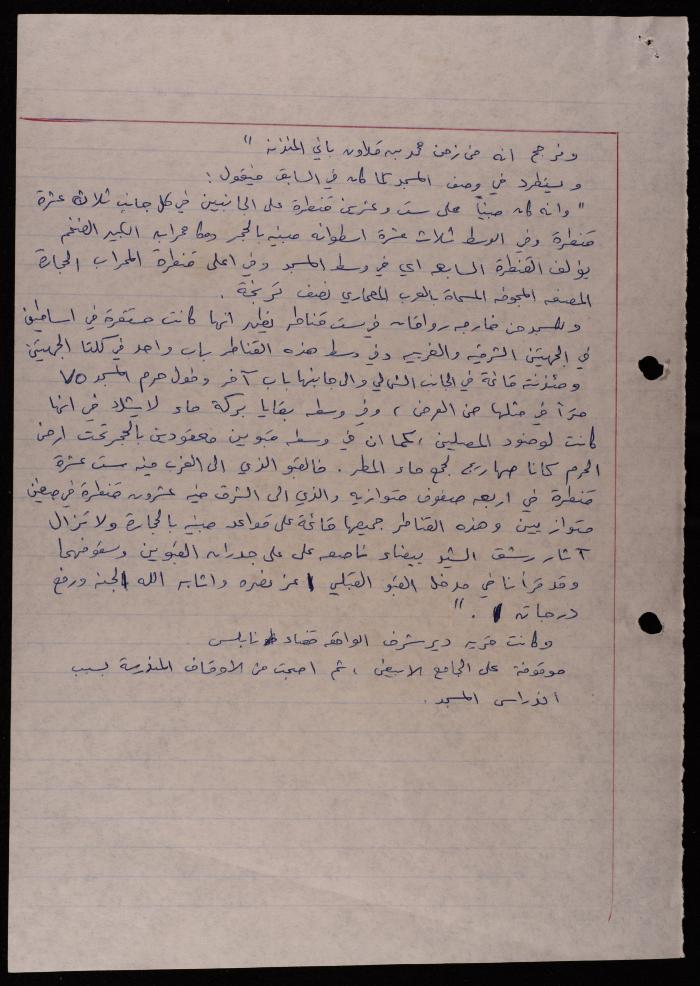 ونرجح انه من زمن محمد بن قلاوون باني المئذنة "
و يستطرد في وصف المسجد كما كان في السابق فيقول :
" وانه كان مبنياً على ست وعشرين قنطرة على الجانبين في كل جانب ثلاث عشرة
قنطرة وفي الوسط ثلاث عشرة اسطوانه مبنيه بالحجر وكان محرابه الكبير الضخم
يؤلف القنطرة السابعه اي في وسط المسجد وفي اعلى قنطرة المحراب الحجارة
المصنعه المجوفه المسماة بالعرب المعماري نصف تربيخة .
وللمسجد من خارجه رواقان في ست قناطر يظهر انها كانت مستقرة في اساطين
في الجهتين الشرقيه والغربيه وفي وسط هذه القناطر باب واحد في كلتا الجهتين
ومئذنته قائمة في الجانب الشمالي والى جانبها باب آخر وطول حرم المسجد ٧٥
متراً في مثلها من العرض ، وفي وسطه بقايا بركة ماء لا يشك في انها
كانت لوضوء المصلين ، كما ان في وسطه قبوين معقودين بالحجر تحت ارض
الحرم كانا صهاريج لجمع ماء المطر . فالقبو الذي الى الغرب فيه ست عشرة
قنطرة في اربعه صفوف متوازيه والذي الى الشرق فيه عشرون قنطرة في صفين
متوازيين وهذه القناطر جميعها قائمة على قواعد مبنيه بالحجارة ولا تزال
آثار رشق الشيد بيضاء ناصعه على على جدران القبوين وسقوفهما
وقد قرأنا في مدخل القبو القبلي عز نصره واثابه الله الجنه ورفع
درجاته . "
وكانت قريه دير شرف الواقعه قضاء نابلس
موقوفة على الجامع الابيض ، ثم اصبحت من الاوقاف المندرسة بسبب
اندراس المسجد .